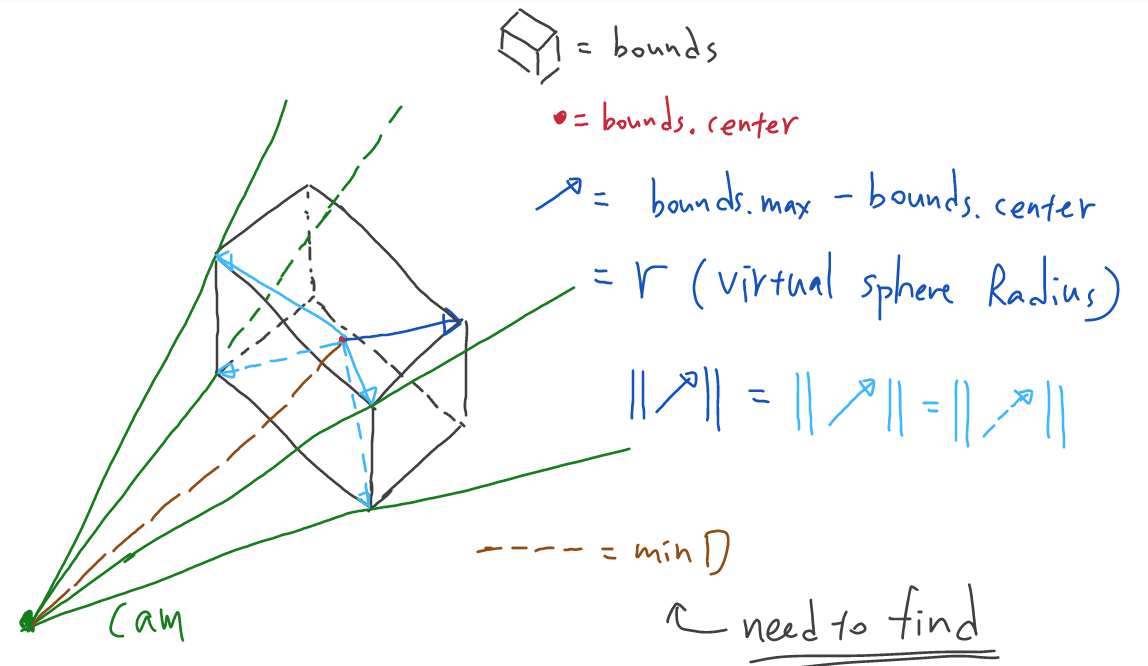 = bounds
= bounds.center
= bounds.max - bounds.center
= r (virtual sphere Radius)
|| || = || || = || ||
= min D
need to find
Cam